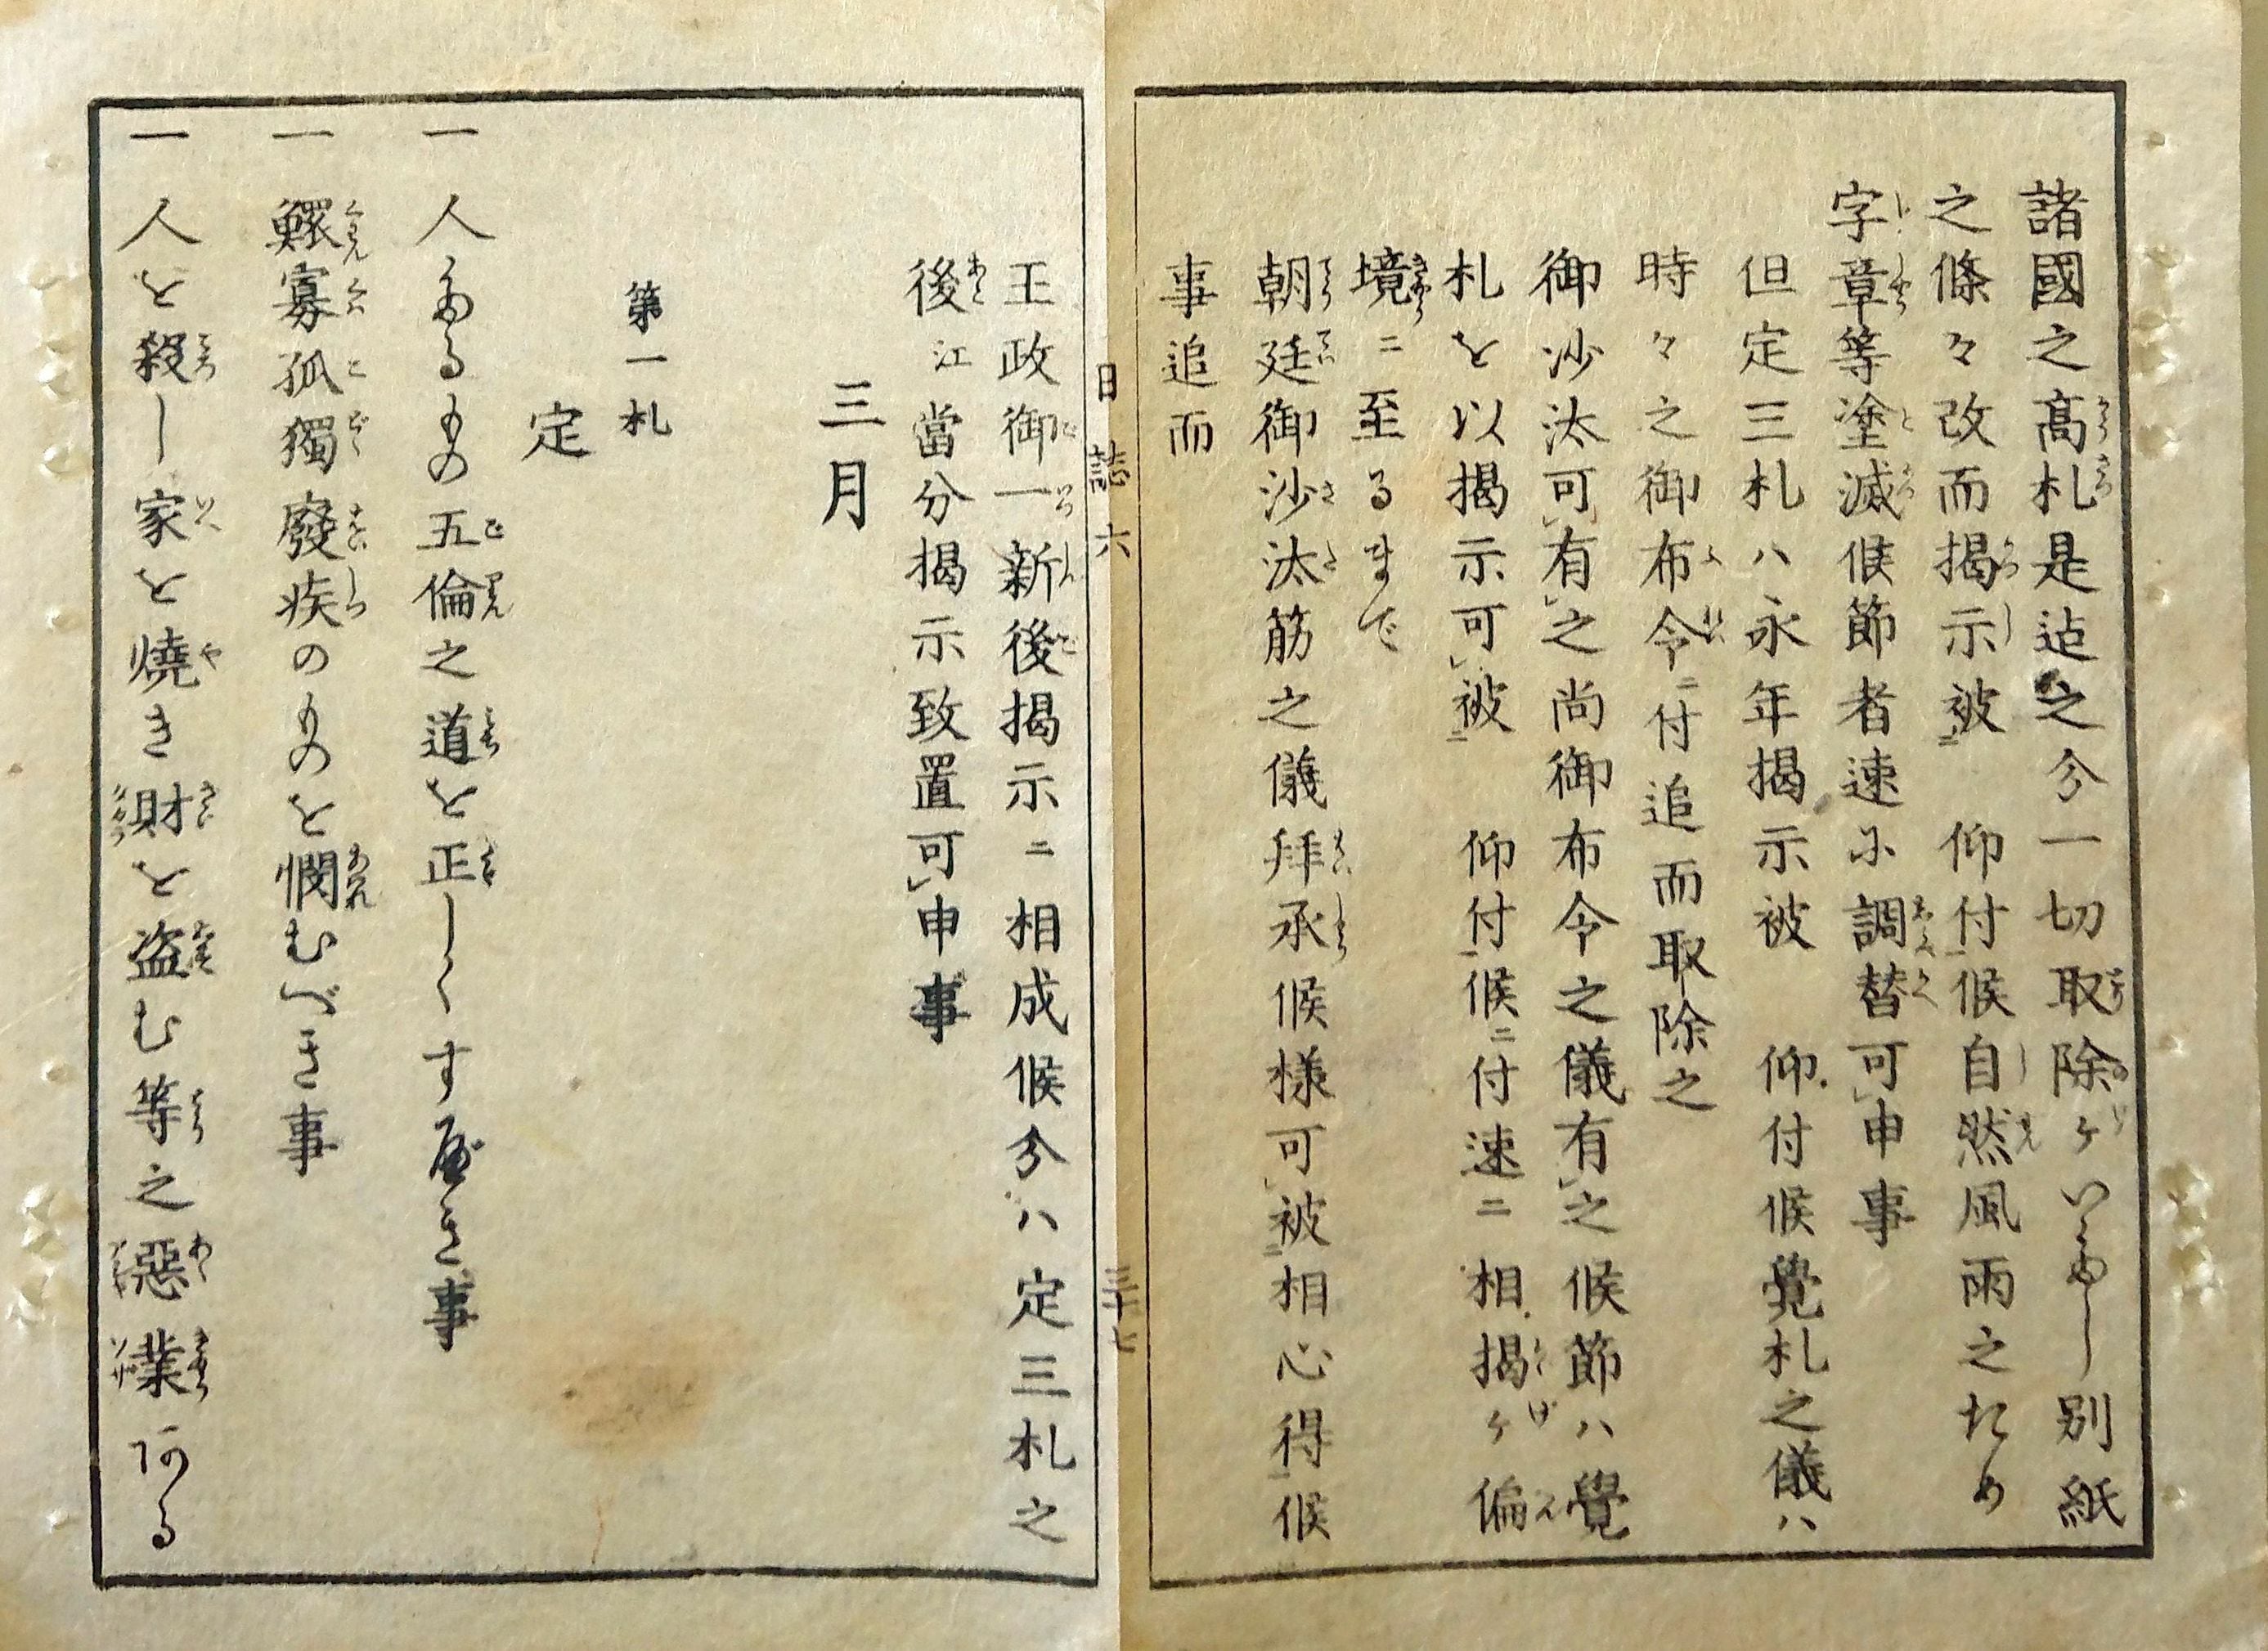 諸國之高札是迠之分一切取除ケいたし別紙
之條々改而揭示被　仰付候自然風雨之ため
字章等塗滅候節者速に調替可申事
但定三札ハ永年揭示被　仰付候覺札之儀ハ
時々之御布令ニ付追而取除之
御沙汰可有之尚御布令之儀有之候節ハ覺
札を以揭示可被　仰付候ニ付速ニ相揭ケ偏
境ニ至るまで
朝廷御沙汰筋之儀拜承候樣可被相心得候
事追而
日誌六　三十七
王政御一新後揭示ニ相成候分ハ定三札之
後江當分揭示致置可申事
三月
第一札
定
一　人たるもの五倫之道を正しくすべき事
一　鰥寡孤獨廢疾のものを憫むべき事
一　人を殺し家を燒き財を盗む等之惡業ある